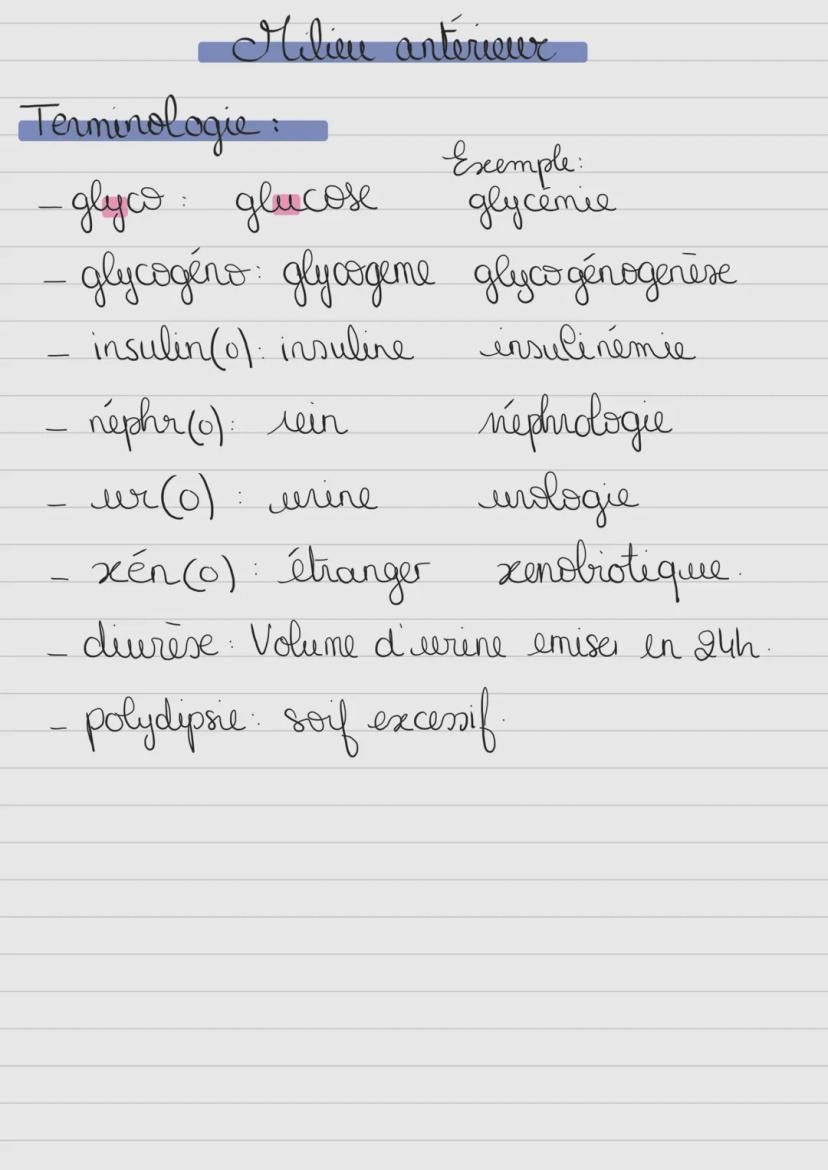 Milieu antérieur
Terminologie :
Exemple:
- glyco : glucose glycémie
- glycogéno : glycogeme glycogénogenèse
- insulin(o) : insuline insulinémie
- néphr(o) : rein néphrologie
- ur(o) : urine urologie
- xén(o) : étranger xenobiotique.
- diurèse : Volume d'urine emise en 24h.
- polydipsie : soif excessif.